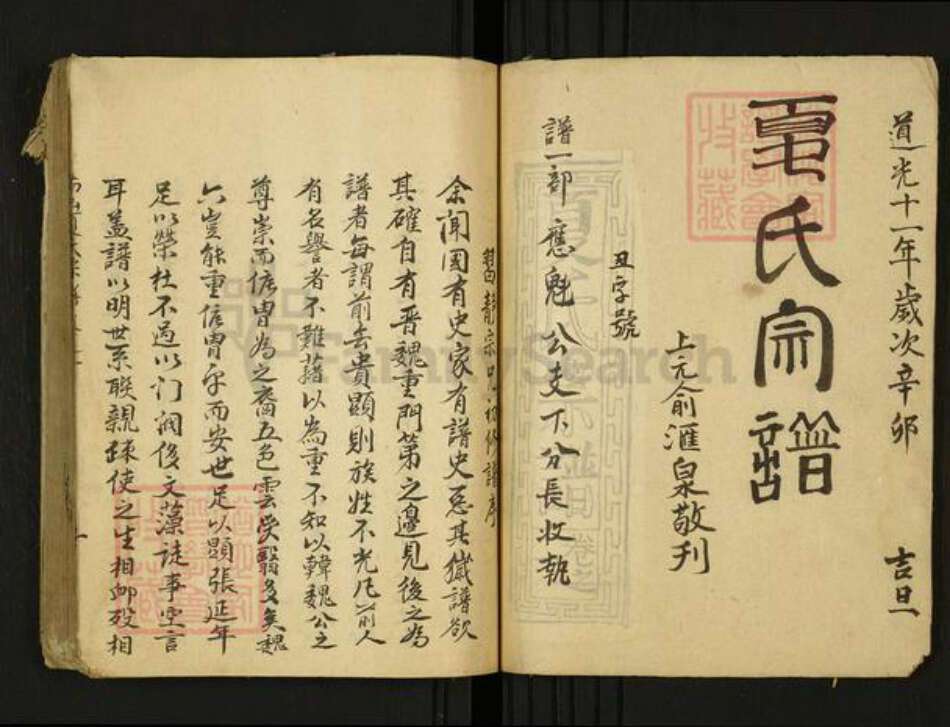 道光十一年歲次辛卯 吉旦
夏氏宗譜
上元俞滙泉敬刊
丑字號
譜一部應魁公支下分長收執
靜宗 初修譜序
余聞國有史家有譜史惡其穢譜欲
其確自有晋魏重門第之邊見後之為
譜者每謂前无貴顯則族姓不光凡前人
有名譽者不難藉以為重不知以韓魏公之
尊崇而信胄為之裔五色雲受翳多矣魏
六豈能重信胄乎而安世足以顯張延年
足以榮杜不過以门閥後文藻徒事空言
耳盖譜以明世系聯親疎使之生相卹殁相
FamilySearch